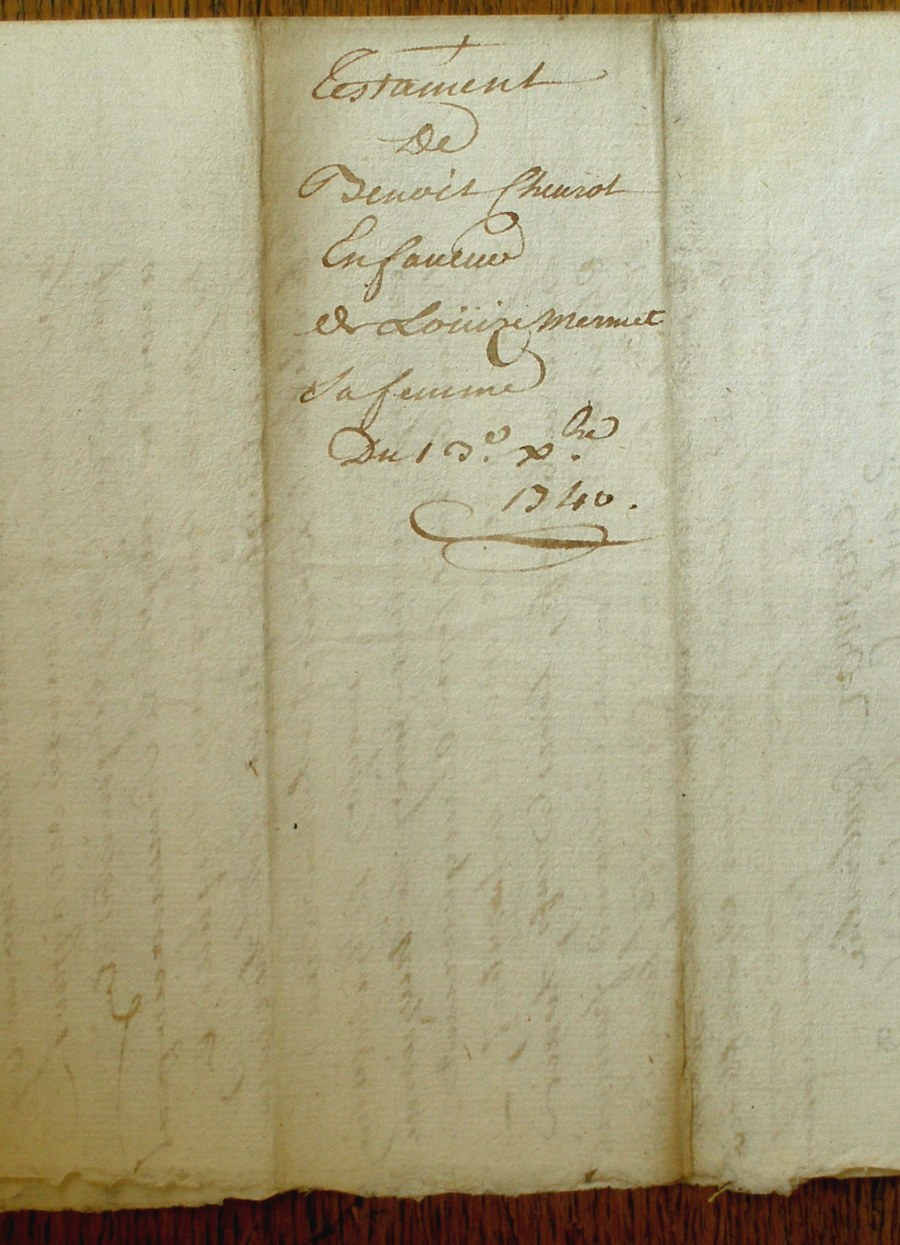 Testament
De
Benoit Cheurot
En faueur
de Loüise Mermet
Sa femme
Du 13e xbre
1740.